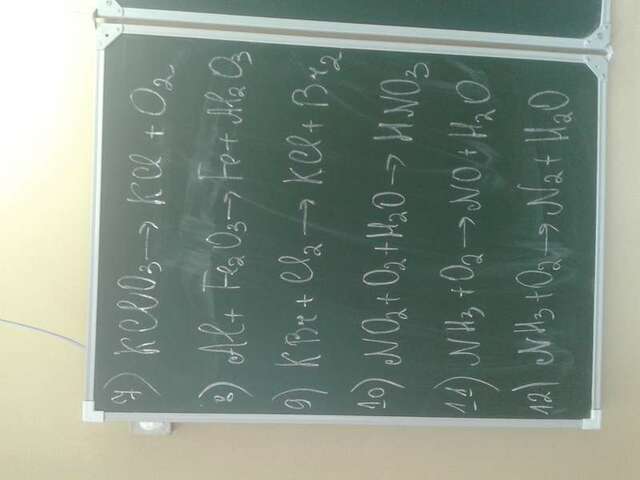 7) KClO₃ → KCl + O₂
8) Al + Fe₂O₃ → Fe + Al₂O₃
9) KBr + Cl₂ → KCl + Br₂
10) NO₂ + O₂ + H₂O → HNO₃
11) NH₃ + O₂ → NO + H₂O
12) NH₃ + O₂ → N₂ + H₂O